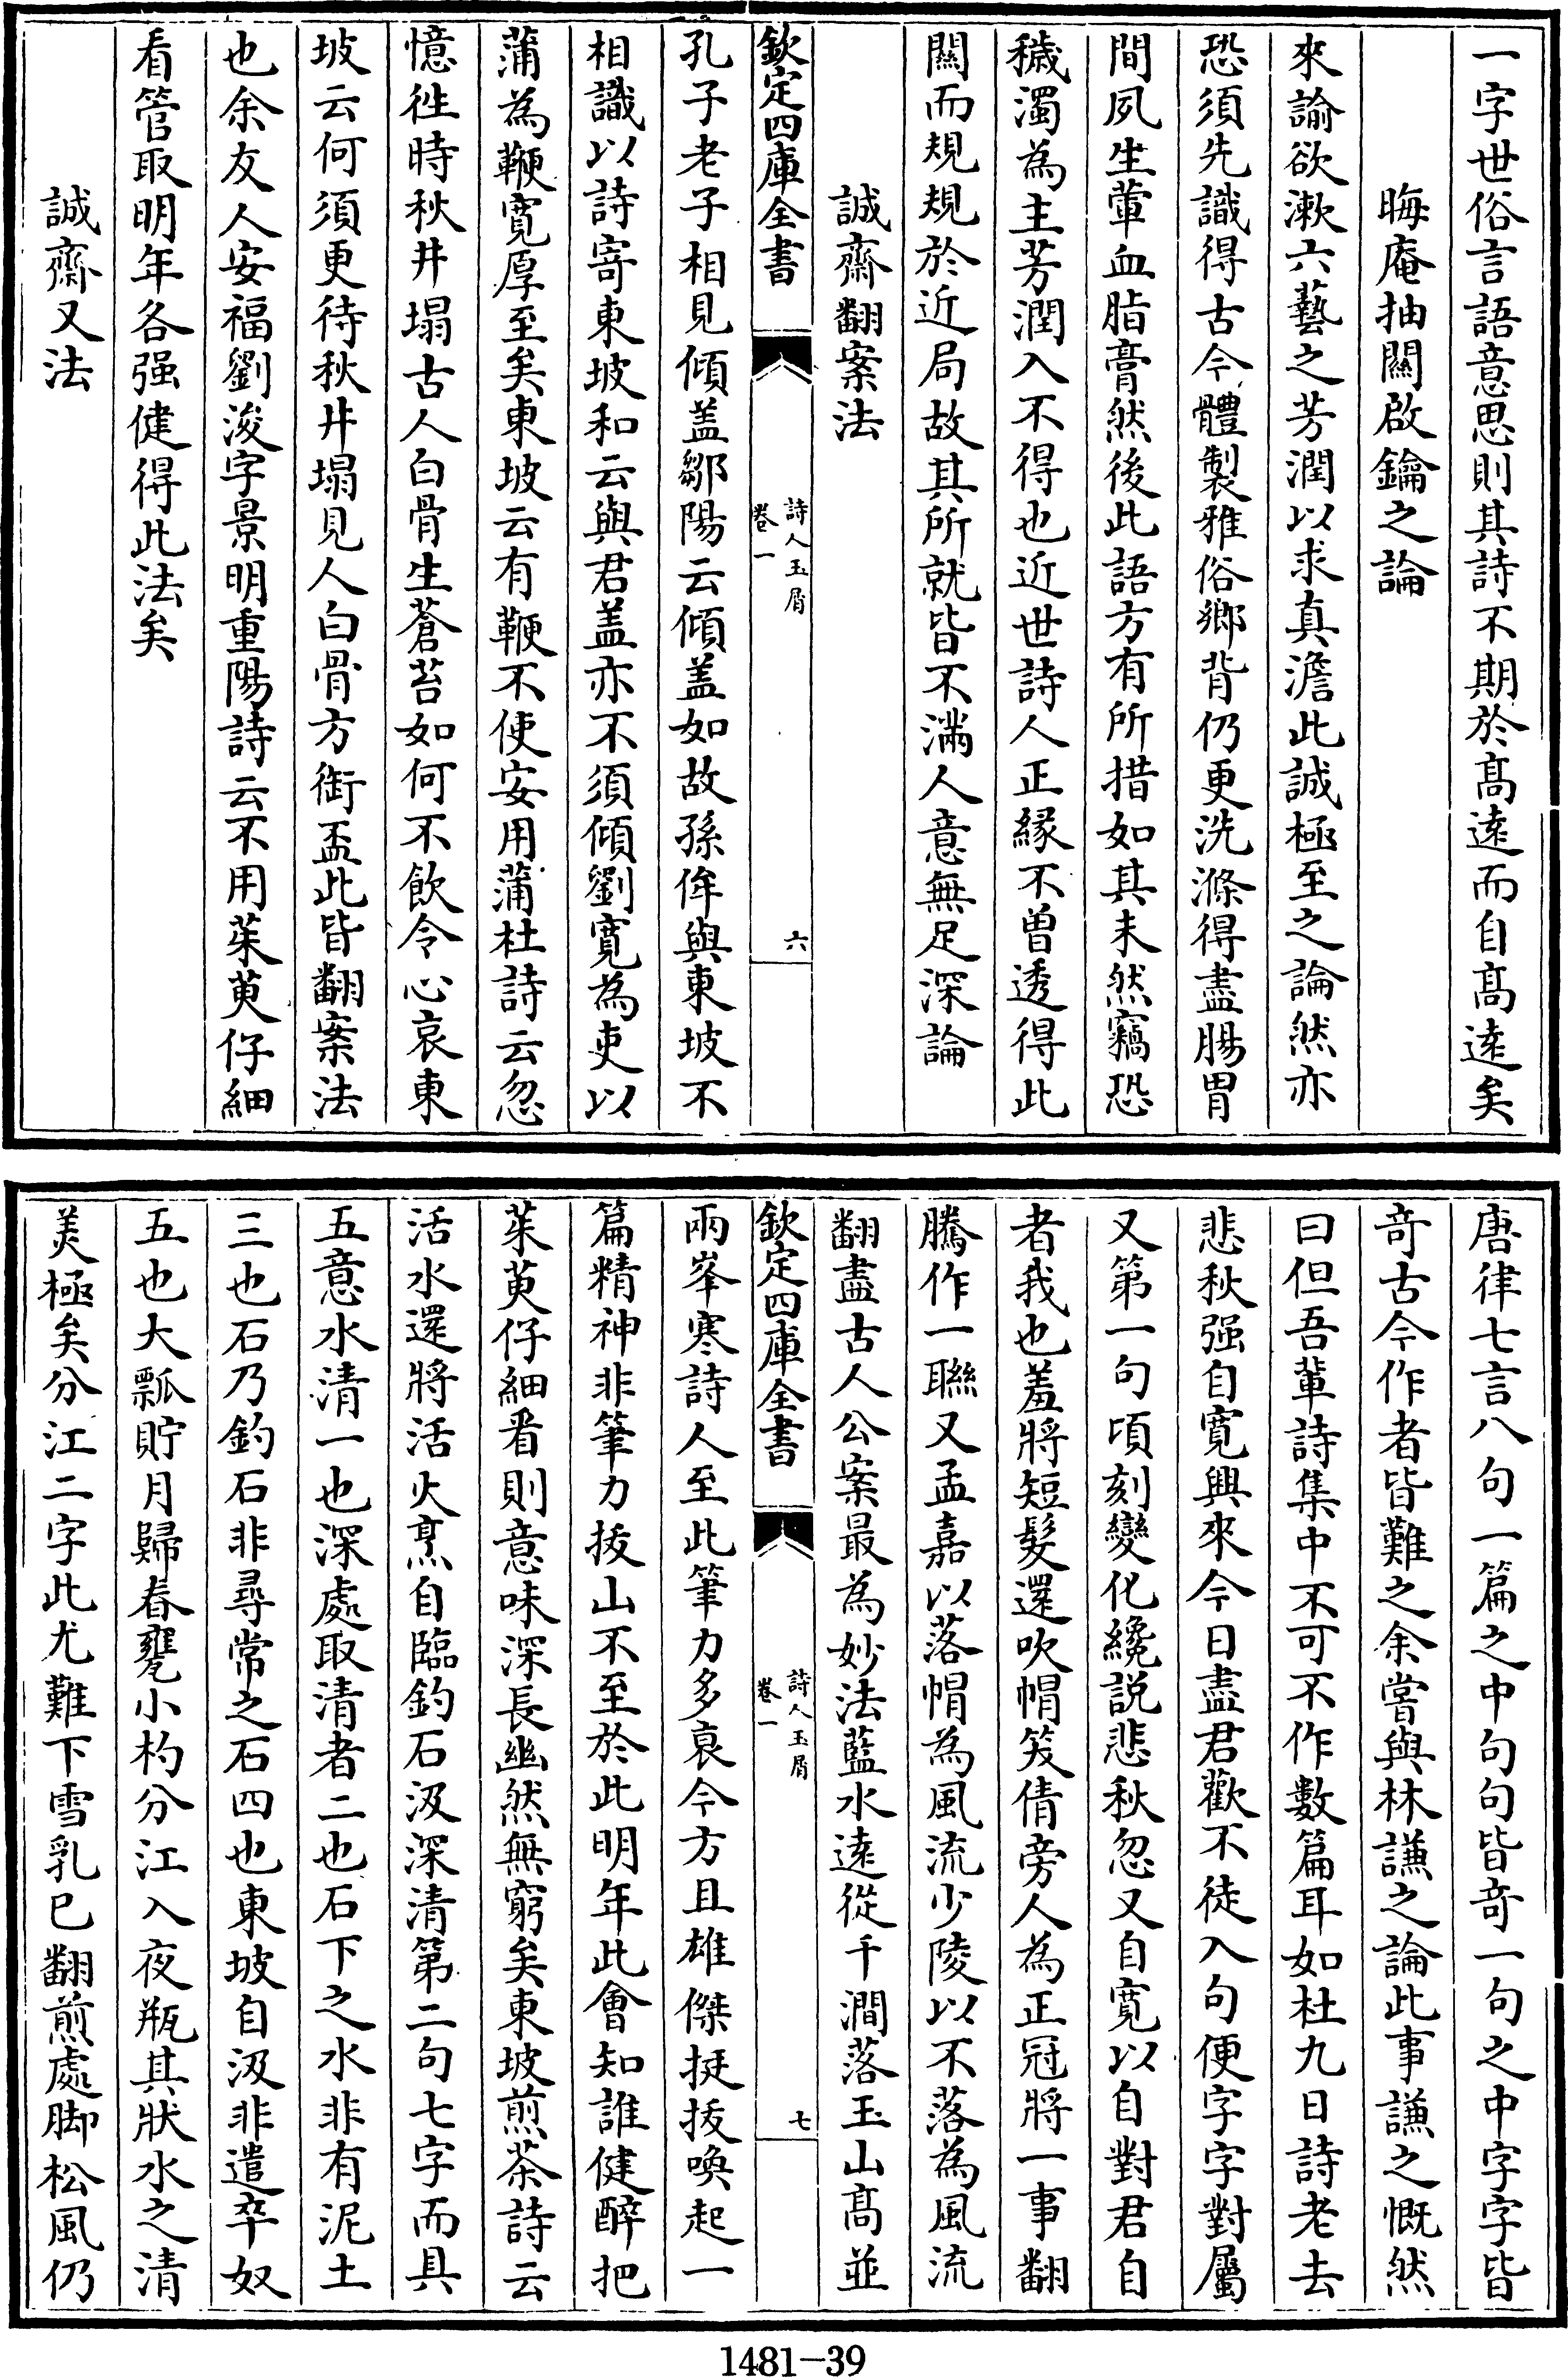 一字世俗言語意思則其詩不期於髙逺而自髙逺矣
晦庵抽闗啟鑰之論
來諭欲漱六藝之芳潤以求真澹此誠極至之論然亦
恐須先識得古今體製雅俗鄉背仍更洗滌得盡腸胃
間夙生葷血脂膏然後此語方有所措如其未然竊恐
穢濁為主芳潤入不得也近世詩人正緣不曽透得此
闗而規規於近局故其所就皆不滿人意無足深論
誠齋翻案法
欽定四庫全書
詩人玉屑
卷一
六
孔子老子相見傾盖鄒陽云傾盖如故孫侔與東坡不
相識以詩寄東坡和云與君盖亦不須傾劉寛為吏以
蒲為鞭寛厚至矣東坡云有鞭不使安用蒲杜詩云忽
憶徃時秋井塌古人白骨生蒼苔如何不飲令心哀東
坡云何須更待秋井塌見人白骨方銜盃此皆翻案法
也余友人安福劉浚字景明重陽詩云不用茱萸仔細
看管取明年各强健得此法矣
誠齋又法
唐律七言八句一篇之中句句皆竒一句之中字字皆
竒古今作者皆難之余嘗與林謙之論此事謙之慨然
曰但吾軰詩集中不可不作數篇耳如杜九日詩老去
悲秋强自寛興來今日盡君歡不徒入句便字字對屬
又第一句頃刻變化纔説悲秋忽又自寛以自對君自
者我也羞將短髮還吹帽笑倩旁人為正冠將一事翻
騰作一聯又孟嘉以落帽為風流少陵以不落為風流
翻盡古人公案最為妙法藍水逺從千澗落玉山髙並
欽定四庫全書
詩人玉屑
卷一
七
兩峯寒詩人至此筆力多衰今方且雄傑挺拔喚起一
篇精神非筆力拔山不至於此明年此會知誰健醉把
茱萸仔細看則意味深長幽然無窮矣東坡煎茶詩云
活水還將活火烹自臨釣石汲深清第二句七字而具
五意水清一也深處取清者二也石下之水非有泥土
三也石乃釣石非尋常之石四也東坡自汲非遣卒奴
五也大瓢貯月歸春甕小杓分江入夜瓶其狀水之清
美極矣分江二字此尤難下雪乳已翻煎處脚松風仍
1481-39